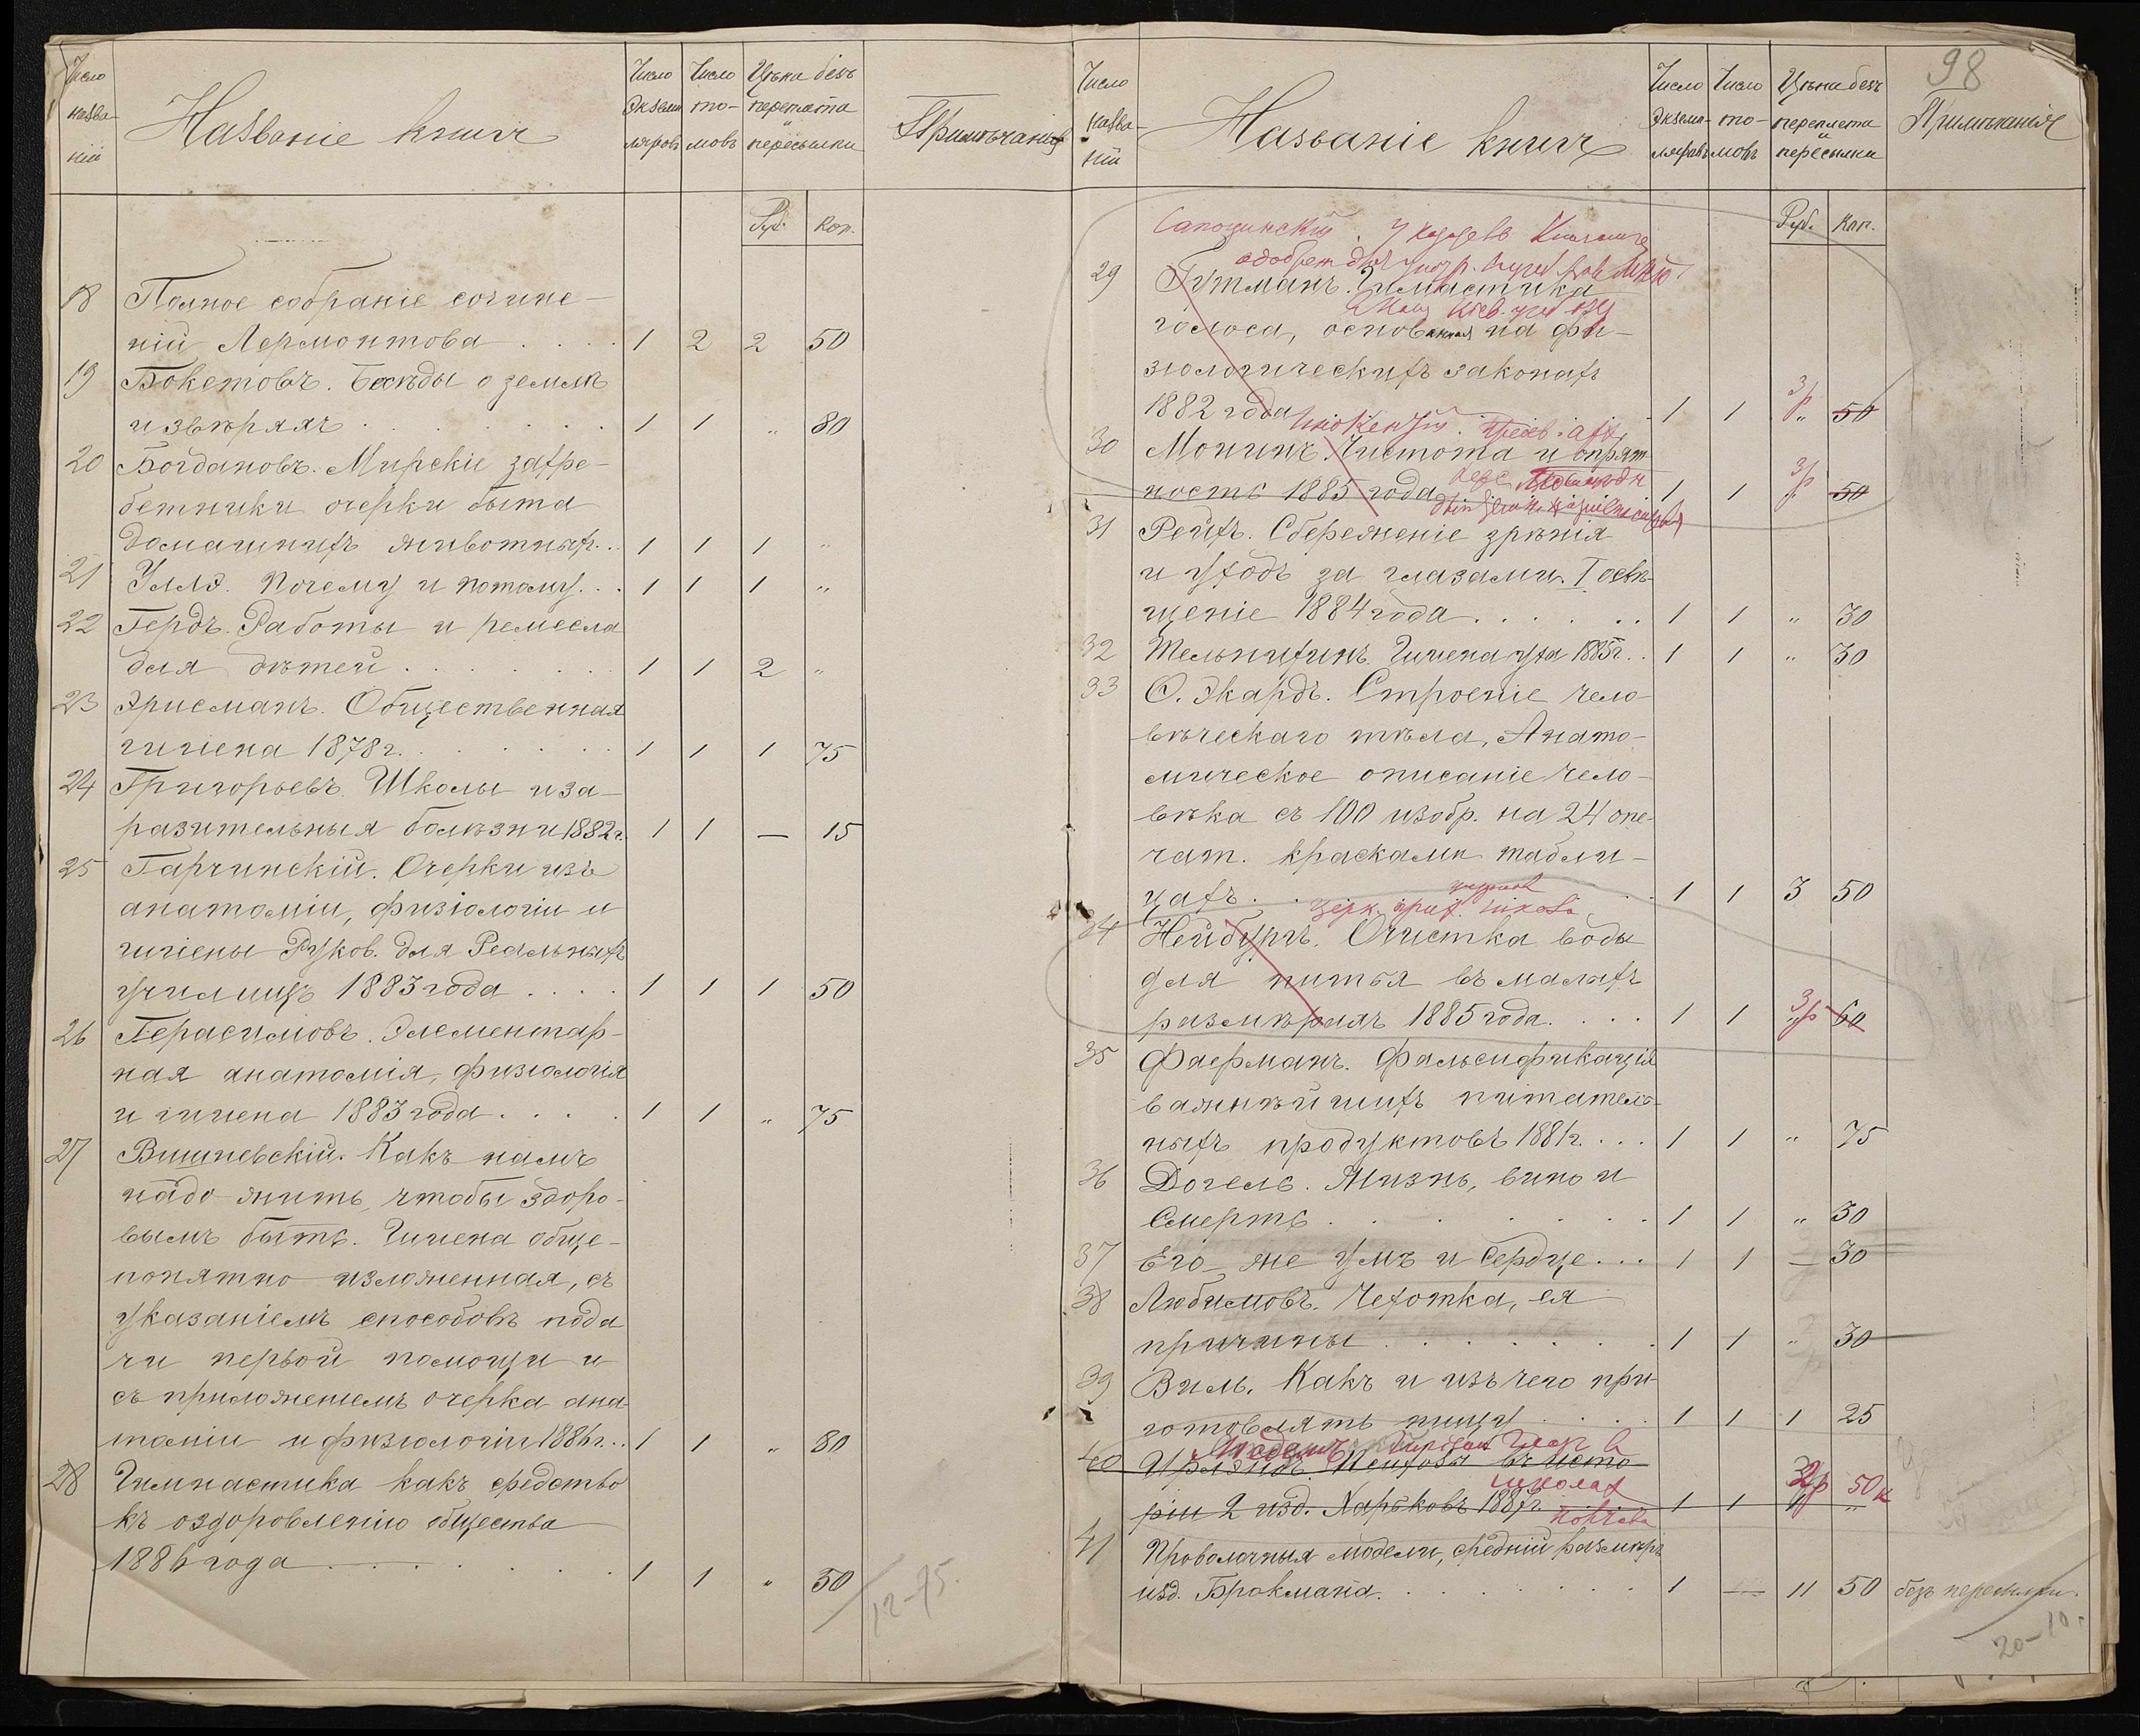 Число названій
Названіе книгъ
Число экземпляровъ
Число томовъ
Цѣна безъ переплета и пересылки
Примѣчанія
Руб. Коп.
18 Полное собраніе сочине-
ній Лермонтова . . . . 1 2 2 50
19 Бекетовъ. Бесѣды о землѣ
и звѣряхъ . . . . . . . 1 1 „ 80
20 Богдановъ. Мірскіе захре-
бетники очерки быта
домашнихъ животныхъ. . . 1 1 1 „
21 Уллэ. Почему и потому. . . 1 1 1 „
22 Гердъ. Работы и ремесла
для дѣтей . . . . . . . 1 1 2 „
23 Эрисманъ. Общественная
гигіена 1878 г. . . . . . 1 1 1 75
24 Григорьевъ. Школы и за-
разительныя болѣзни 1882 г. 1 1 — 15
25 Гарчинскій. Очерки изъ
анатоміи, физіологіи и
гигіены Руков. для Реальныхъ
училищъ 1883 года . . . . 1 1 1 50
26 Герасимовъ. Элементар-
ная анатомія, физіологія
и гигіена 1883 года . . . . 1 1 „ 75
27 Вишневскій. Какъ намъ
надо жить, чтобы здоро-
вымъ быть. Гигіена обще-
понятно изложенная, съ
указаніемъ способовъ пода
чи первой помощи и
съ приложеніемъ очерка ана-
томіи и физіологіи 1886 г. . . 1 1 „ 80
28 Гимнастика какъ средство
къ оздоровленію общества
1886 года . . . . . . . 1 1 „ 50
12-75.
98
Число названій
Названіе книгъ
Число экземпляровъ
Число томовъ
Цѣна безъ переплета и пересылки
Примѣчанія
Руб. Коп.
29 Гутманъ. Гимнастика
голоса, основанная на фи-
зіологическихъ законахъ
1882 года 1 1 3р „ 50
30 Монинъ. Чистота и опрят-
ность 1885 года 1 1 3р 50
31 Рейхъ. Сбереженіе зрѣнія
и уходъ за глазами. I освѣ-
щеніе 1884 года . . . . . . 1 1 „ 30
32 Мельнихинъ. Гигіена уха 1885 г. . 1 1 „ 30
33 О. Экардъ. Строеніе чело-
вѣческаго тѣла, Анато-
мическое описаніе чело-
вѣка съ 100 изобр. на 24 опе-
чат. красками табли-
цахъ. . . 1 1 3 50
34 Нейбургъ. Очистка воды
для питья въ малыхъ
размѣрахъ 1885 года. . . . 1 1 3р 60
35 Фаерманъ. Фальсификація
важнѣйшихъ питатель-
ныхъ продуктовъ 1881 г. . . . 1 1 „ 75
36 Догель. Жизнь, вино и
Смерть . . . . . . . 1 1 „ 30
37 Его-же Умъ и Сердце . . . 1 1 — 30
38 Любимовъ. Чахотка, ея
причины . . . . . . . 1 1 „ 30
39 Виль. Какъ и изъ чего при-
готовлять пищу . . . . 1 1 1 25
40 въ исто-
ріи 2 изд. Харьковъ 1887 г. 1 1 2р 50к
школах
41 Проволочныя модели, средній размѣръ
изд. Брокмана. . . . . . . . 1 — 11 50 безъ пересылки.
20-10.